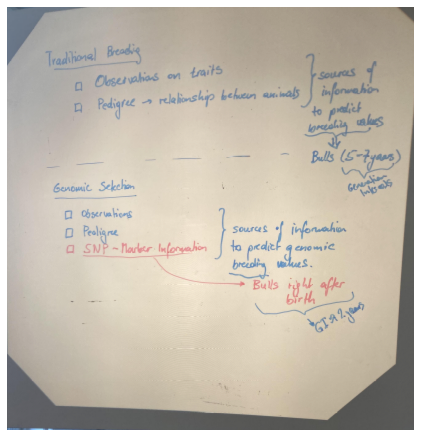 Traditional Breeding
□ Observations on traits
□ Pedigree → relationship between animals
} sources of
information
to predict
breeding values
⇓
Bulls (5-7years)
Generation
Intervals
Genomic Selection
□ Observations
□ Pedigree
□ SNP-Marker Information
} sources of information
to predict genomic
breeding values.
→ Bulls right after
birth
GI ≈ 2 years